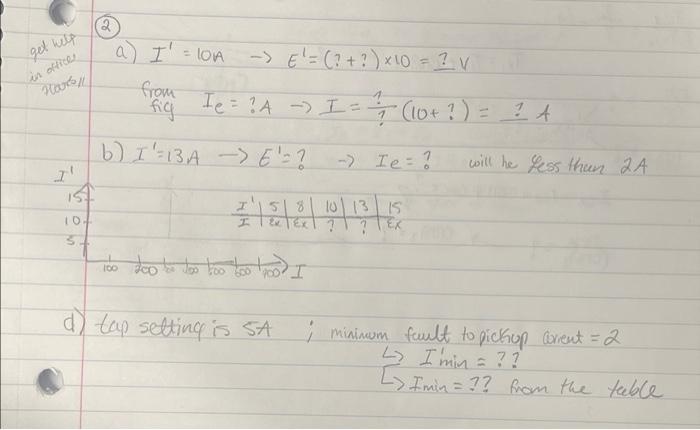 ②
get help
in office
hours!!
a) I' = 10A -> E' = (? + ?) × 10 = ? V
from
fig
Ie = ? A -> I = ?/? (10 + ?) = ? A
b) I' = 13A -> E' = ? -> Ie = ? will be less than 2A
I'
15
10
5
100 200 300 400 500 600 700 I
I' | 5 | 8 | 10 | 13 | 15
I | Ex | Ex | ? | ? | Ex
d) tap setting is 5A ; minimum fault to pickup current = 2
↳ I'min = ??
↳ Imin = ?? from the table